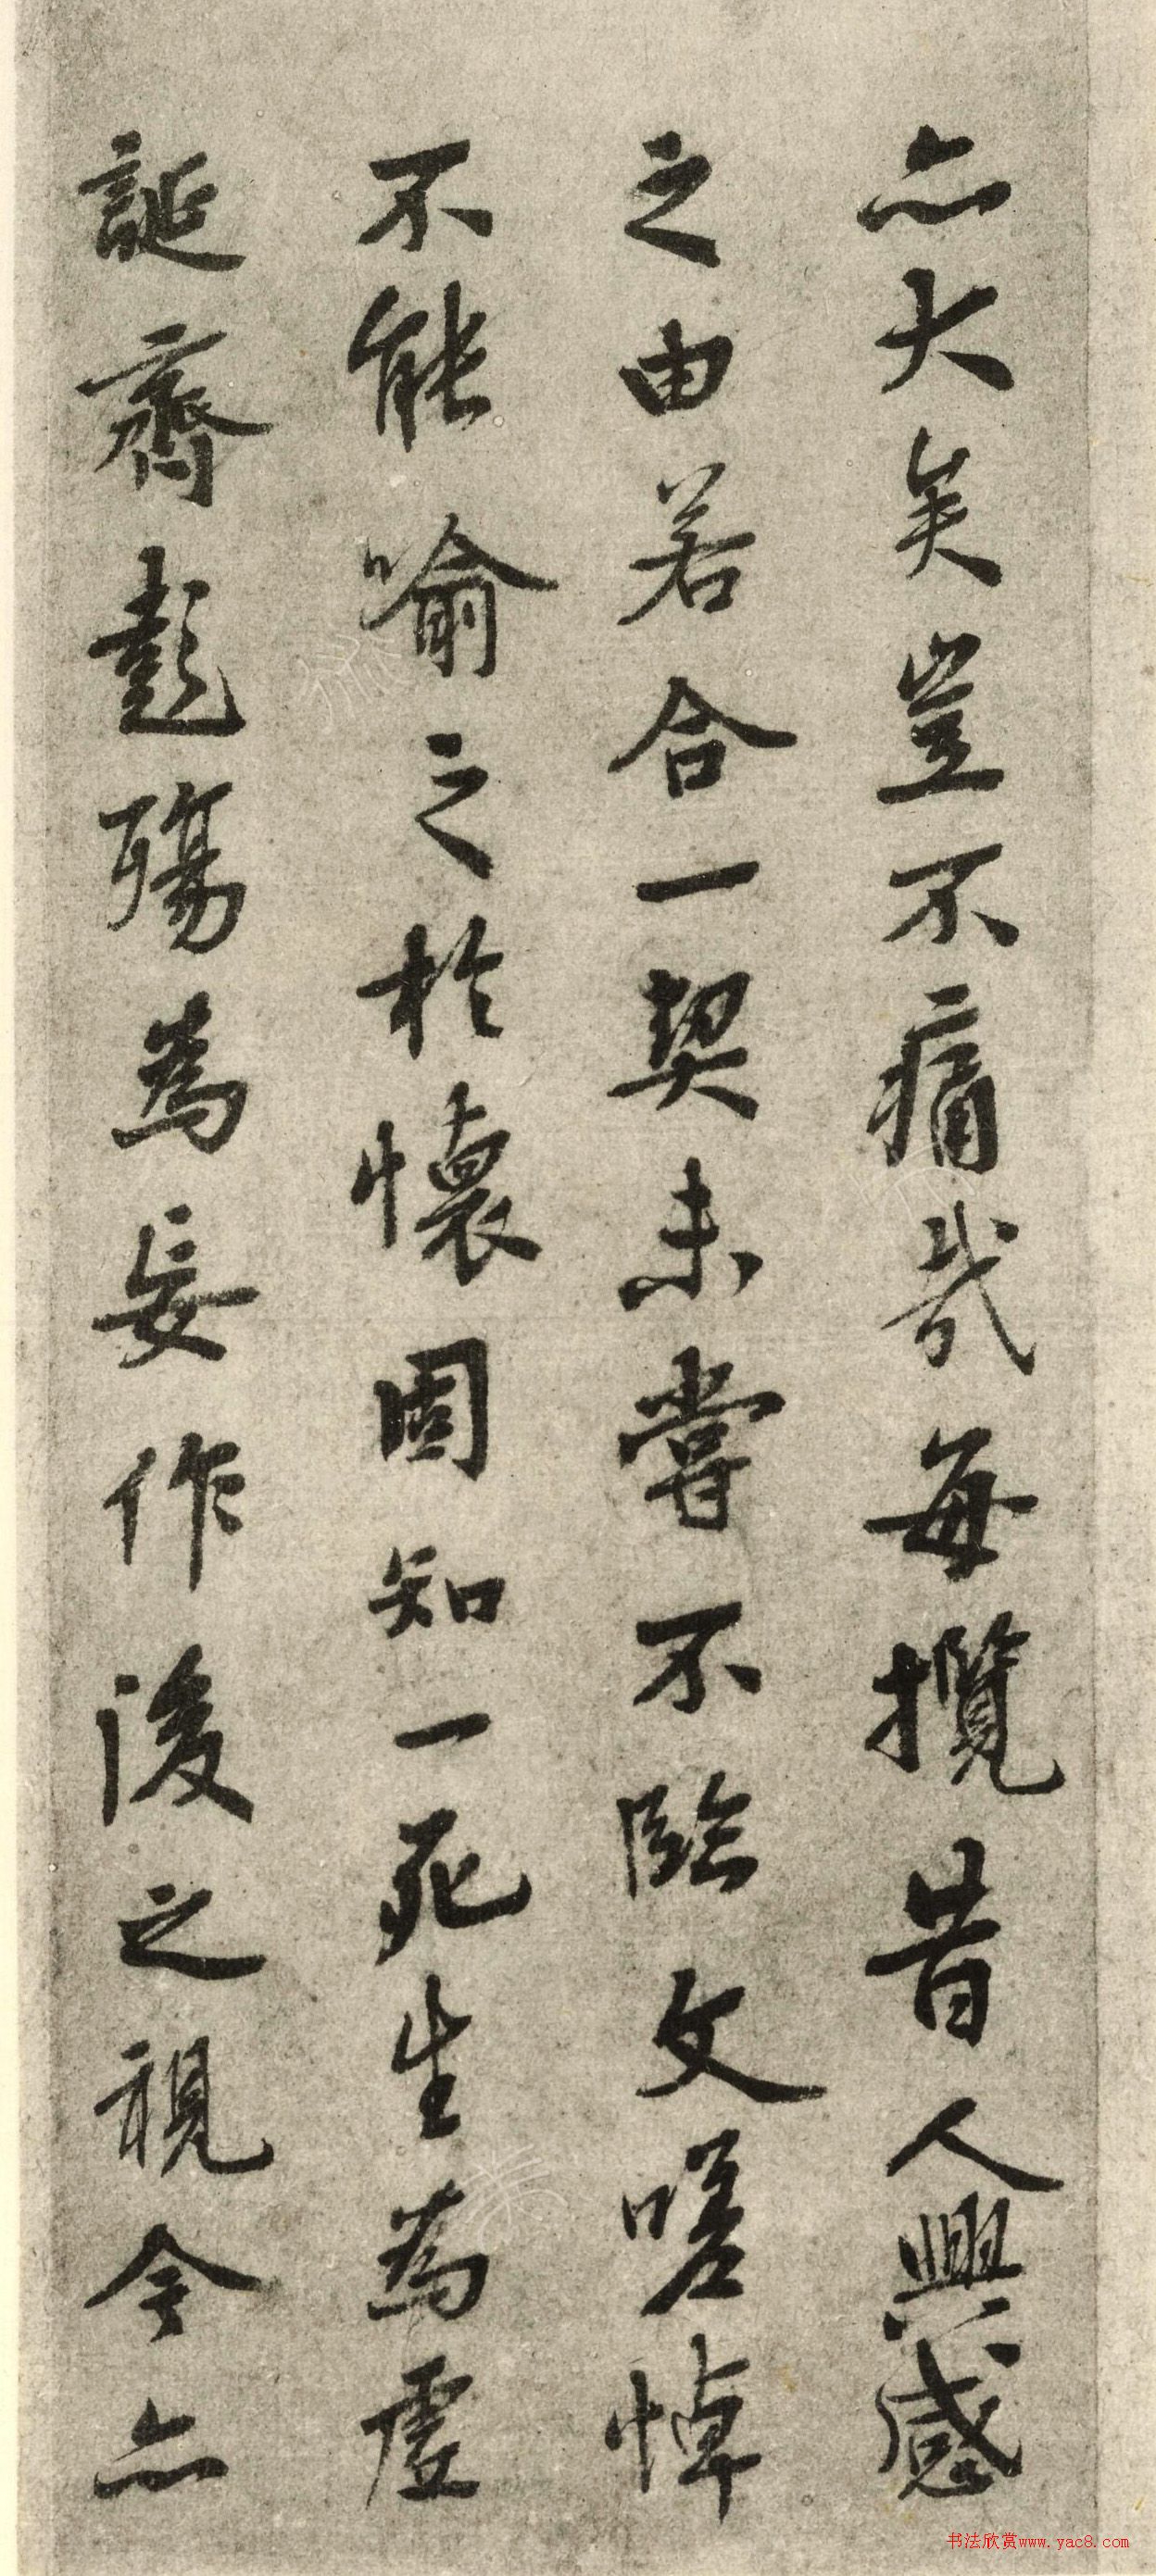 亦大矣豈不痛哉每攬昔人興感
之由若合一契未嘗不臨文嗟悼
不能喻之於懷固知一死生為虛
誕齊彭殤為妄作後之視今亦
书法欣赏www.yac8.com